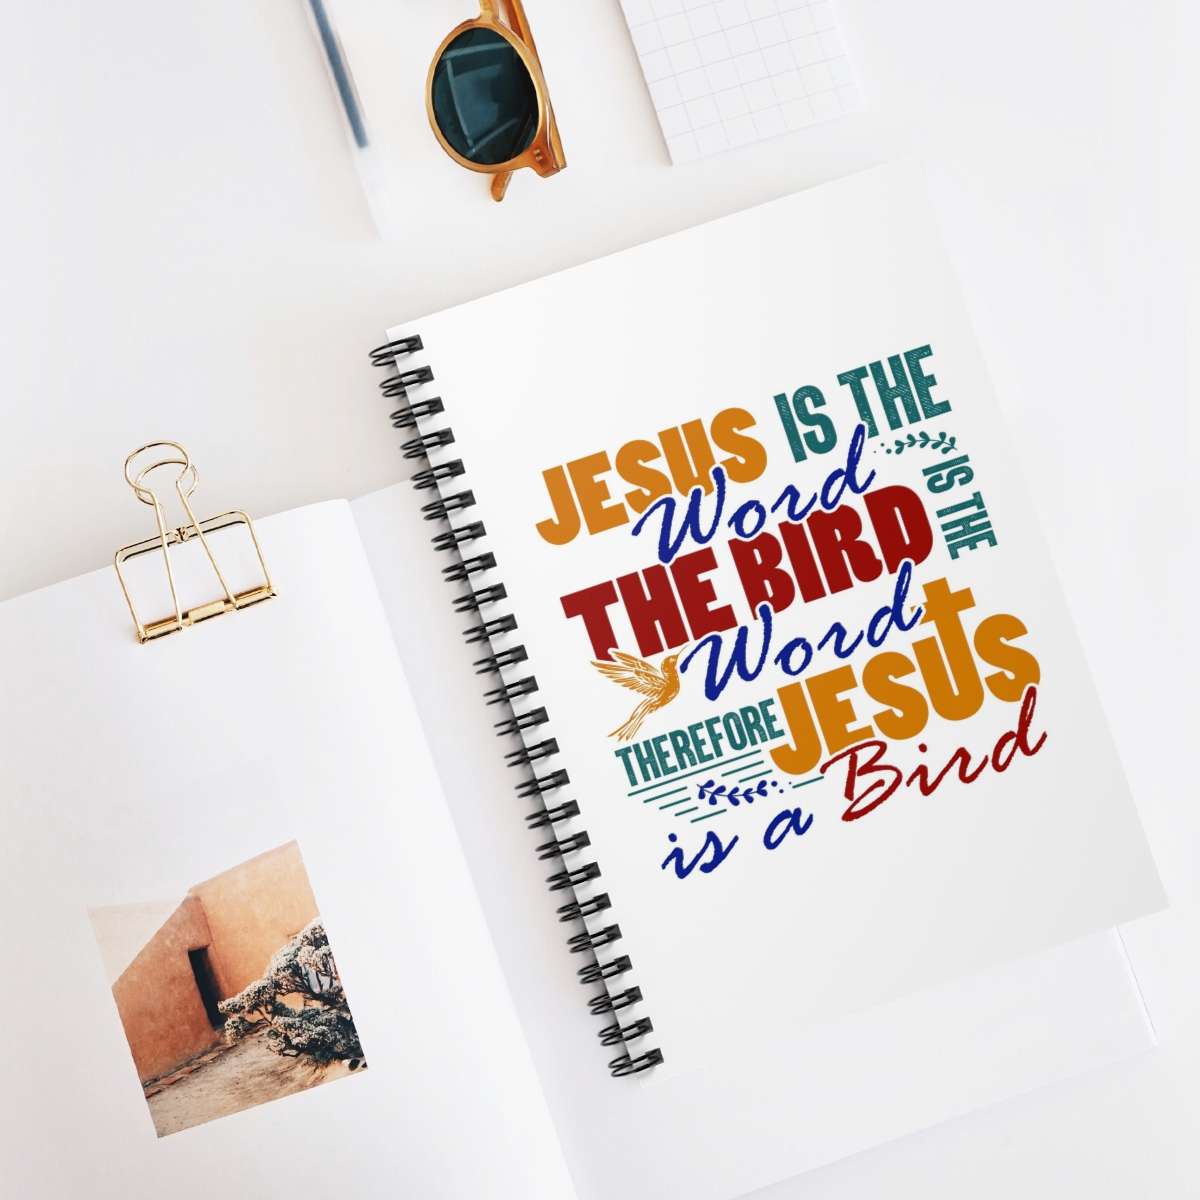 JESUS IS THE
Word
THE BIRD IS THE
Word
THEREFORE JESUS
is a Bird